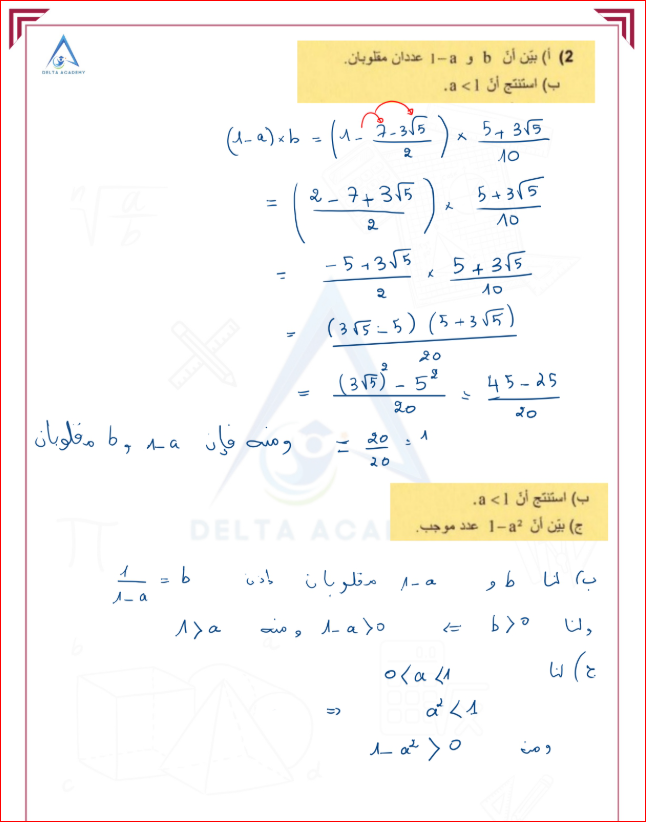 DELTA ACADEMY
2) أ) بيّن أنّ b و 1-a عددان مقلوبان.
ب) استنتج أنّ a < 1.
(1-a)×b = (1 - (7-3√5)/2) × (5+3√5)/10
= ((2-7+3√5)/2) × (5+3√5)/10
= (-5+3√5)/2 × (5+3√5)/10
= (3√5-5)(5+3√5)/20
= ((3√5)² - 5²)/20 = (45-25)/20
= 20/20 = 1 ومنه فإن 1-a و b مقلوبان
DELTA ACADEMY
ب) استنتج أنّ a < 1.
ج) بيّن أنّ 1-a² عدد موجب.
ب) لنا b و 1-a مقلوبان إذن 1/(1-a) = b
ولنا b>0 ⇐ 1-a>0 ومنه 1>a
ج) لنا 0<a<1
⇒ a²<1
ومنه 1-a²>0